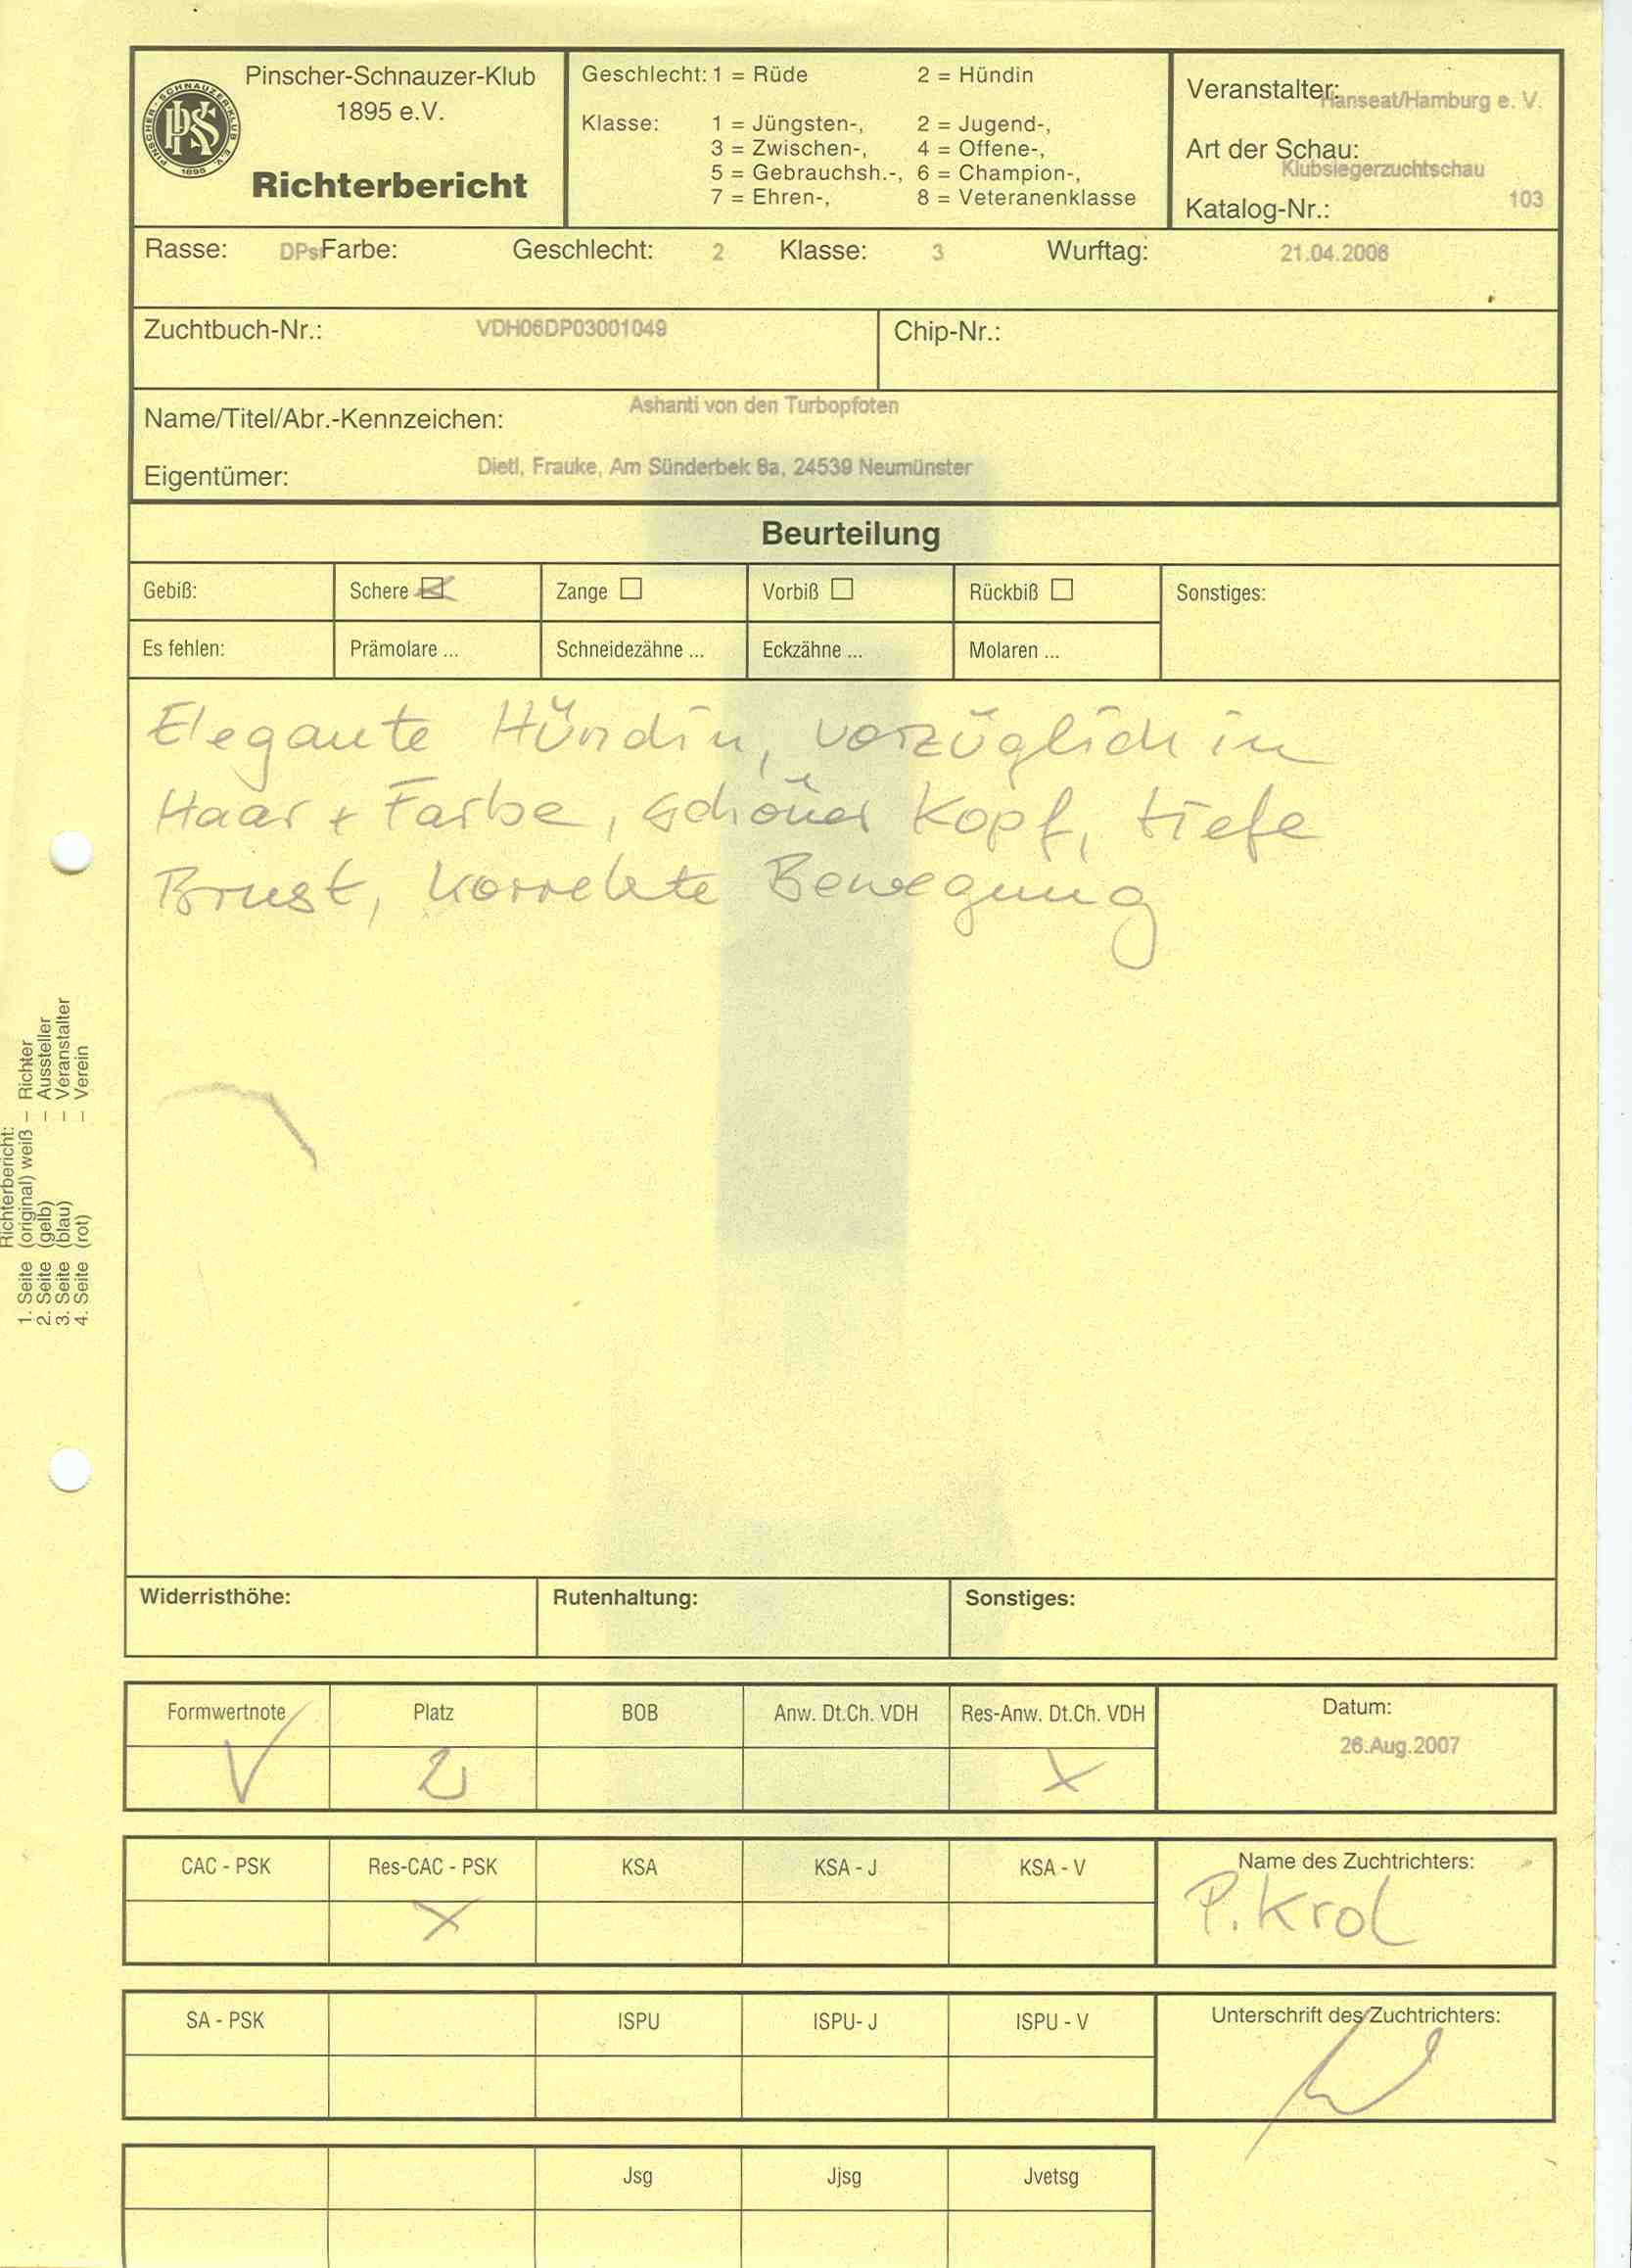 Pinscher-Schnauzer-Klub
1895 e.V.
Richterbericht
PINSCHER-SCHNAUZER-KLUB E.V.
PSK
1895
Geschlecht: 1 = Rüde 2 = Hündin
Klasse: 1 = Jüngsten-, 2 = Jugend-,
3 = Zwischen-, 4 = Offene-,
5 = Gebrauchsh.-, 6 = Champion-,
7 = Ehren-, 8 = Veteranenklasse
Veranstalter: Hanseat/Hamburg e. V.
Art der Schau:
Klubsiegerzuchtschau
Katalog-Nr.: 103
Rasse: DPsr Farbe: Geschlecht: 2 Klasse: 3 Wurftag: 21.04.2006
Zuchtbuch-Nr.: VDH06DP03001049 Chip-Nr.:
Name/Titel/Abr.-Kennzeichen: Ashanti von den Turbopfoten
Eigentümer: Dietl, Frauke, Am Sünderbek 8a, 24539 Neumünster
Beurteilung
Gebiß: Schere Zange Vorbiß Rückbiß Sonstiges:
Es fehlen: Prämolare ... Schneidezähne ... Eckzähne ... Molaren ...
Elegante Hündin, vorzüglich in
Haar + Farbe, schöner Kopf, tiefe
Brust, korrekte Bewegung
Richterbericht:
1. Seite (original) weiß – Richter
2. Seite (gelb) – Aussteller
3. Seite (blau) – Veranstalter
4. Seite (rot) – Verein
Widerristhöhe: Rutenhaltung: Sonstiges:
Formwertnote Platz BOB Anw. Dt.Ch. VDH Res-Anw. Dt.Ch. VDH Datum:
V 2 X 26.Aug.2007
CAC - PSK Res-CAC - PSK KSA KSA - J KSA - V Name des Zuchtrichters:
X P. Krol
SA - PSK ISPU ISPU- J ISPU - V Unterschrift des Zuchtrichters:
Jsg Jjsg Jvetsg